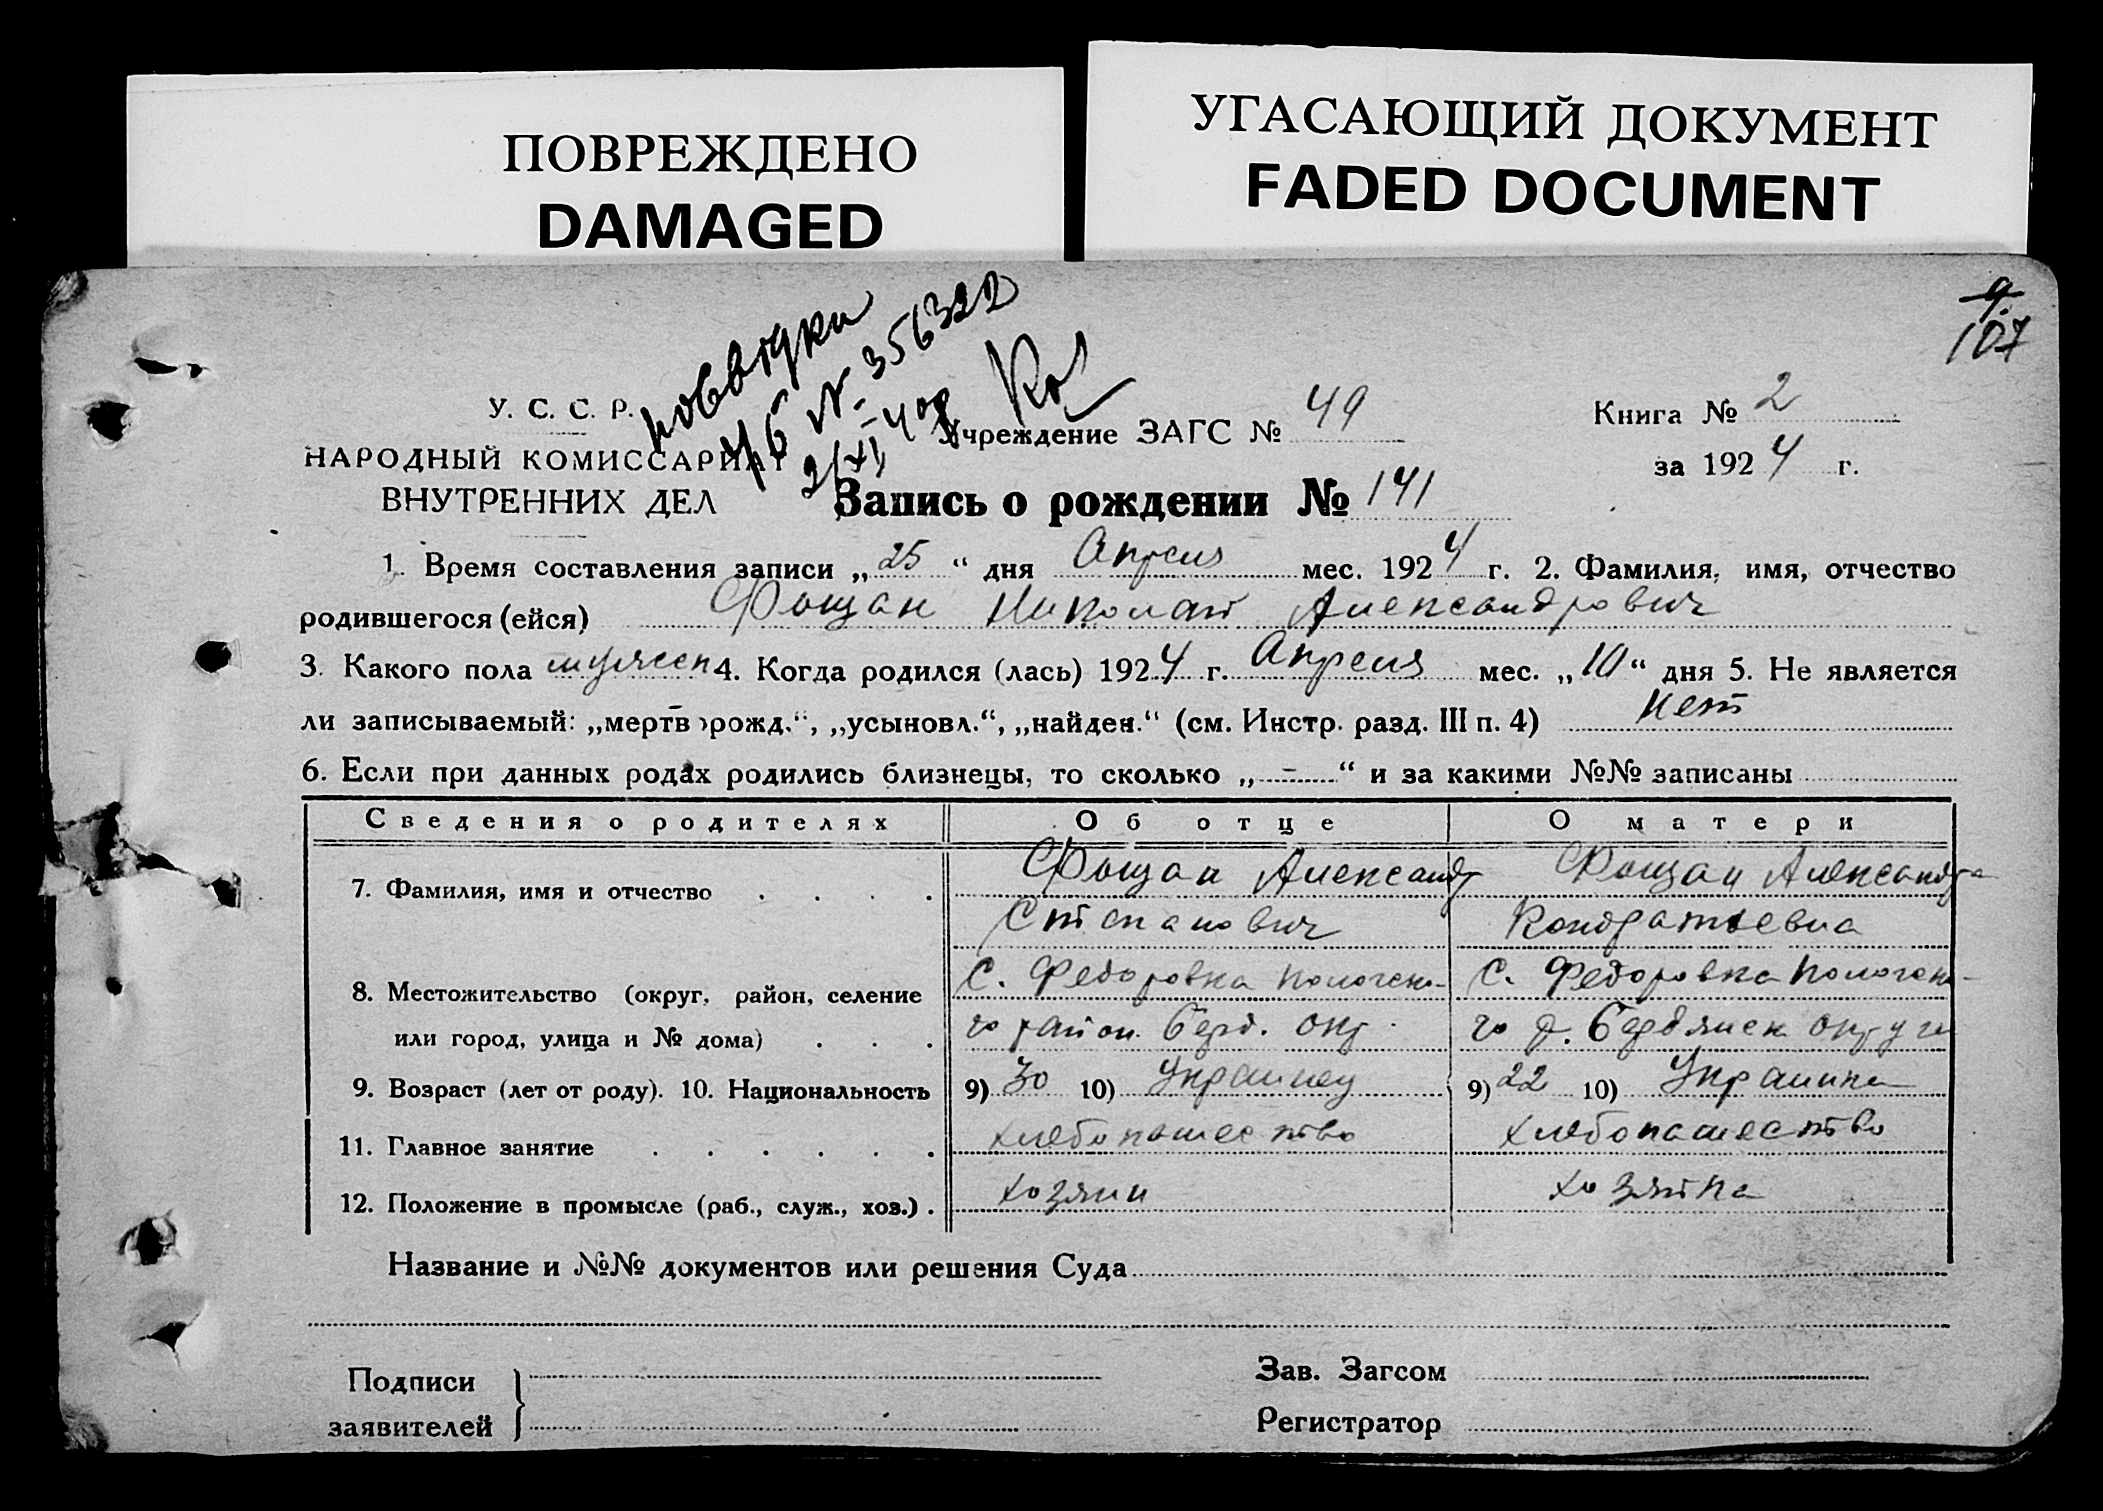 ПОВРЕЖДЕНО
DAMAGED
УГАСАЮЩИЙ ДОКУМЕНТ
FADED DOCUMENT
107
№ 356322
У. С. С. Р.
НАРОДНЫЙ КОМИССАРИАТ
ВНУТРЕННИХ ДЕЛ
Учреждение ЗАГС № 49
Книга № 2
за 1924 г.
Запись о рождении № 141
1. Время составления записи „25“ дня Апреля мес. 1924 г. 2. Фамилия, имя, отчество
родившегося (ейся) Фощан Николай Александрович
3. Какого пола мужеск 4. Когда родился (лась) 1924 г. Апреля мес. „10“ дня 5. Не является
ли записываемый: „мертворожд.“, „усыновл.“, „найден.“ (см. Инстр. разд. III п. 4) Нет
6. Если при данных родах родились близнецы, то сколько „-“ и за какими №№ записаны
Сведения о родителях Об отце О матери
7. Фамилия, имя и отчество . . . . Фощан Александр Фощан Александра
Степанович Кондратьевна
8. Местожительство (округ, район, селение С. Федоровка Пологско- С. Федоровка Пологско-
или город, улица и № дома) . . . го район. Берд. окр. го р. Бердянск округи
9. Возраст (лет от роду). 10. Национальность 9) 30 10) Украинец 9) 22 10) Украинка
11. Главное занятие . . . . . . хлебопашество хлебопашество
12. Положение в промысле (раб., служ., хоз.) . хозяин хозяйка
Название и №№ документов или решения Суда
Подписи
заявителей
Зав. Загсом
Регистратор